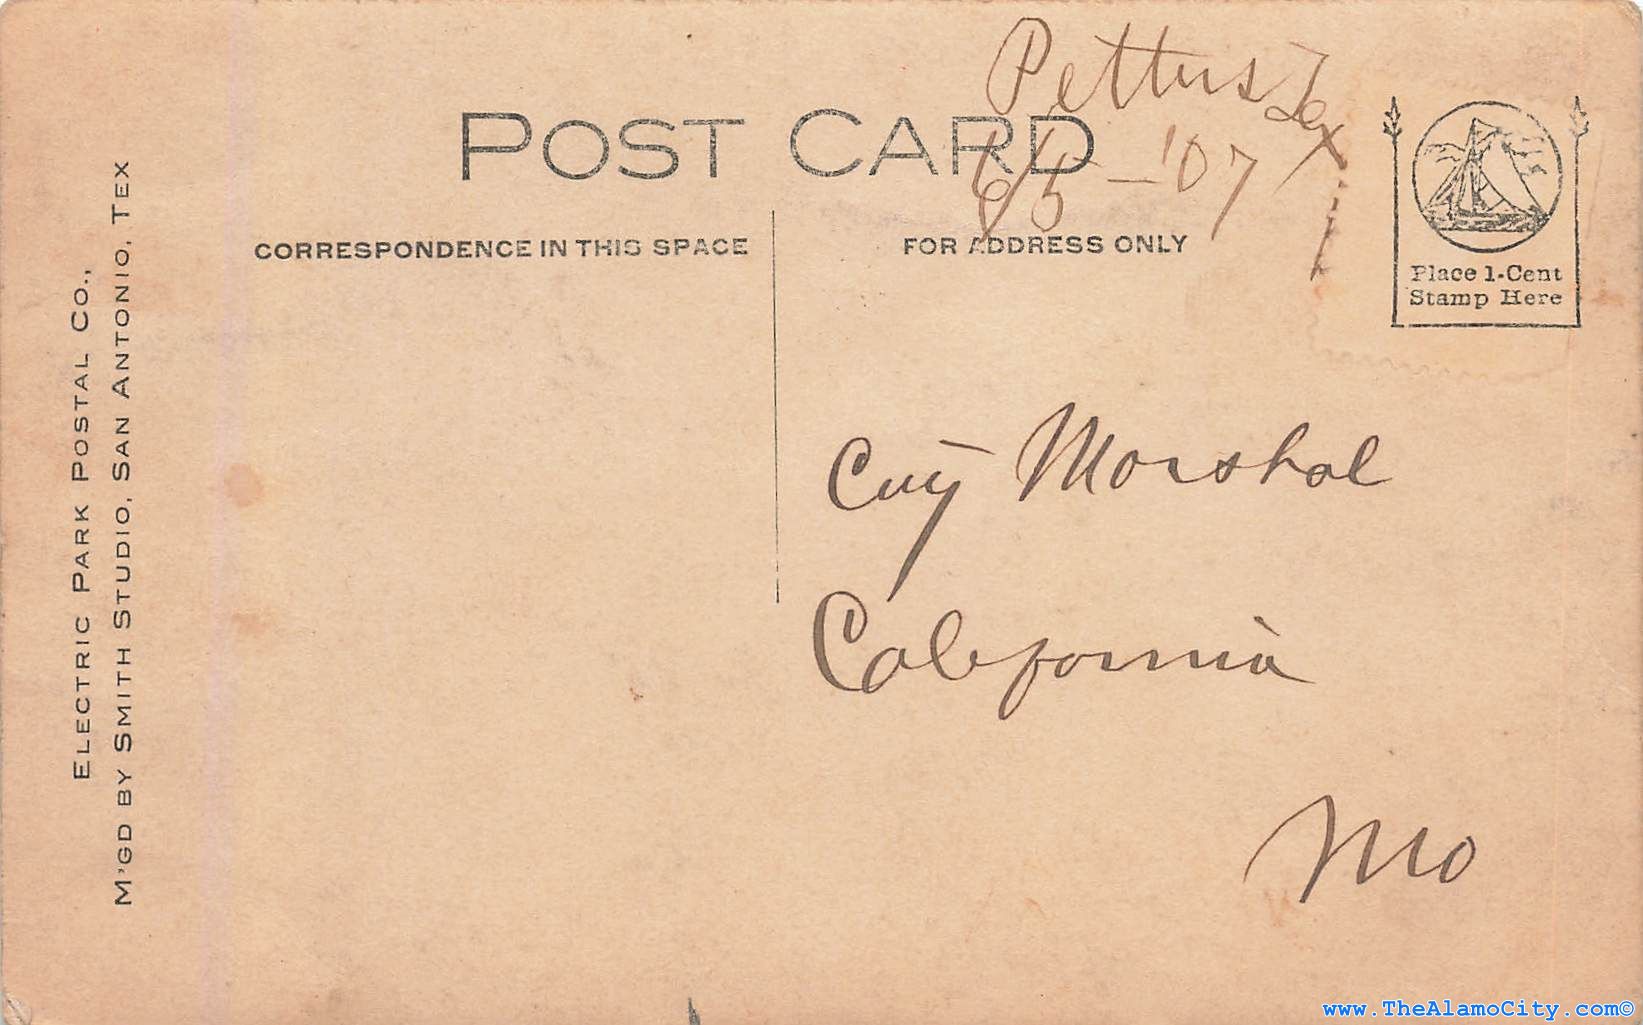 Pettus Tex
6/5 - '07
POST CARD
CORRESPONDENCE IN THIS SPACE
FOR ADDRESS ONLY
Place 1-Cent
Stamp Here
City Marshal
California
Mo
ELECTRIC PARK POSTAL CO.,
M'GD BY SMITH STUDIO, SAN ANTONIO, TEX
www.TheAlamoCity.com©